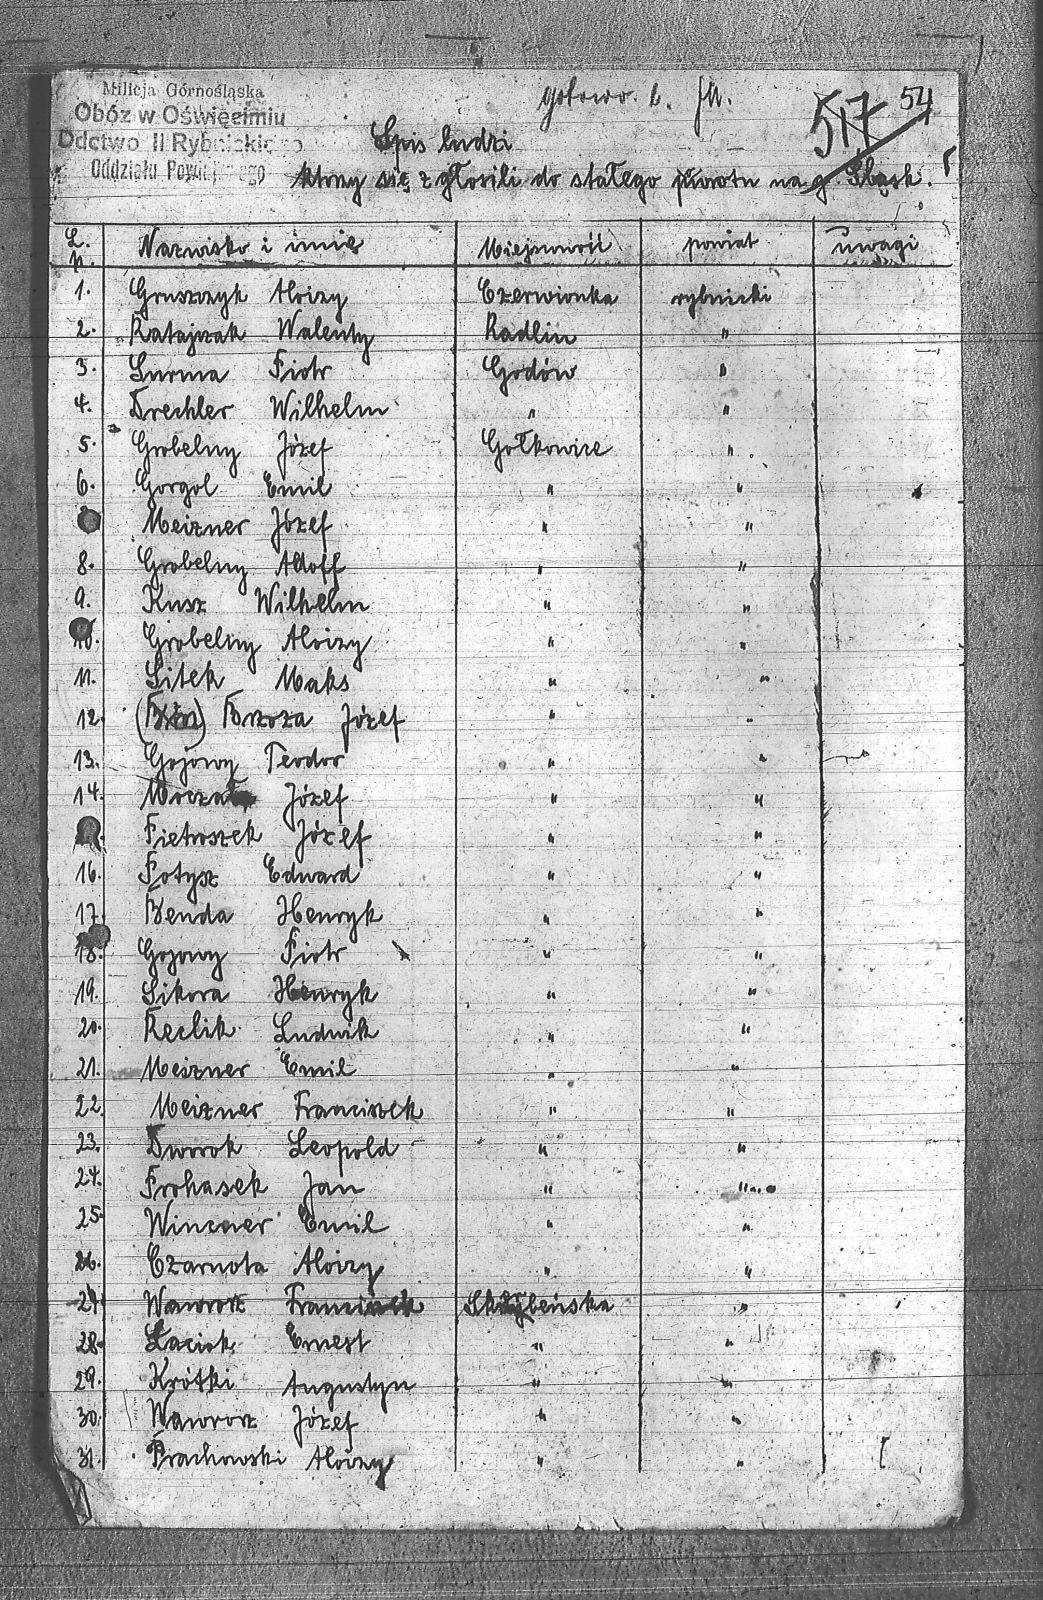 Milicja Górnośląska
Obóz w Oświęcimiu
Ddctwo II Rybnickiego
Oddziału
gotowo.
517 54
Spis ludzi
ktorzy się zgłosili do stałego powrotu na g. Śląsk.
L. n. Nazwisko i imię Miejscowość powiat uwagi
1. Gruszczyk Aloizy Czerwionka rybnicki
2. Ratajczak Walenty Radlin "
3. Surma Piotr Godów "
4. Drechler Wilhelm " "
5. Grobelny Józef Gołkowice "
6. Gorgol Emil " "
Meizner Józef " "
8. Grobelny Adolf " "
9. Kusz Wilhelm " "
10. Grobelny Aloizy " "
11. Sitek Maks " "
12. Brzoza Józef " "
13. Gojowy Teodor " "
14. Józef " "
Pietroszek Józef " "
16. Fotysz Edward " "
17. Benda Henryk " "
18. Gojowy Piotr " "
19. Sikora Henryk " "
20. Reclik Ludwik " "
21. Meszner Emil " "
22. Meizner Franciszek " "
23. Dworok Leopold " "
24. Prohasek Jan " "
25. Emil " "
26. Czarnota Aloizy " "
27. Wawrosz Franciszek Skrzybeńska "
28. Łaciok Ernest " "
29. Krótki Augustyn " "
30. Wawrosz Józef " "
31. Prachowski Aloizy " "